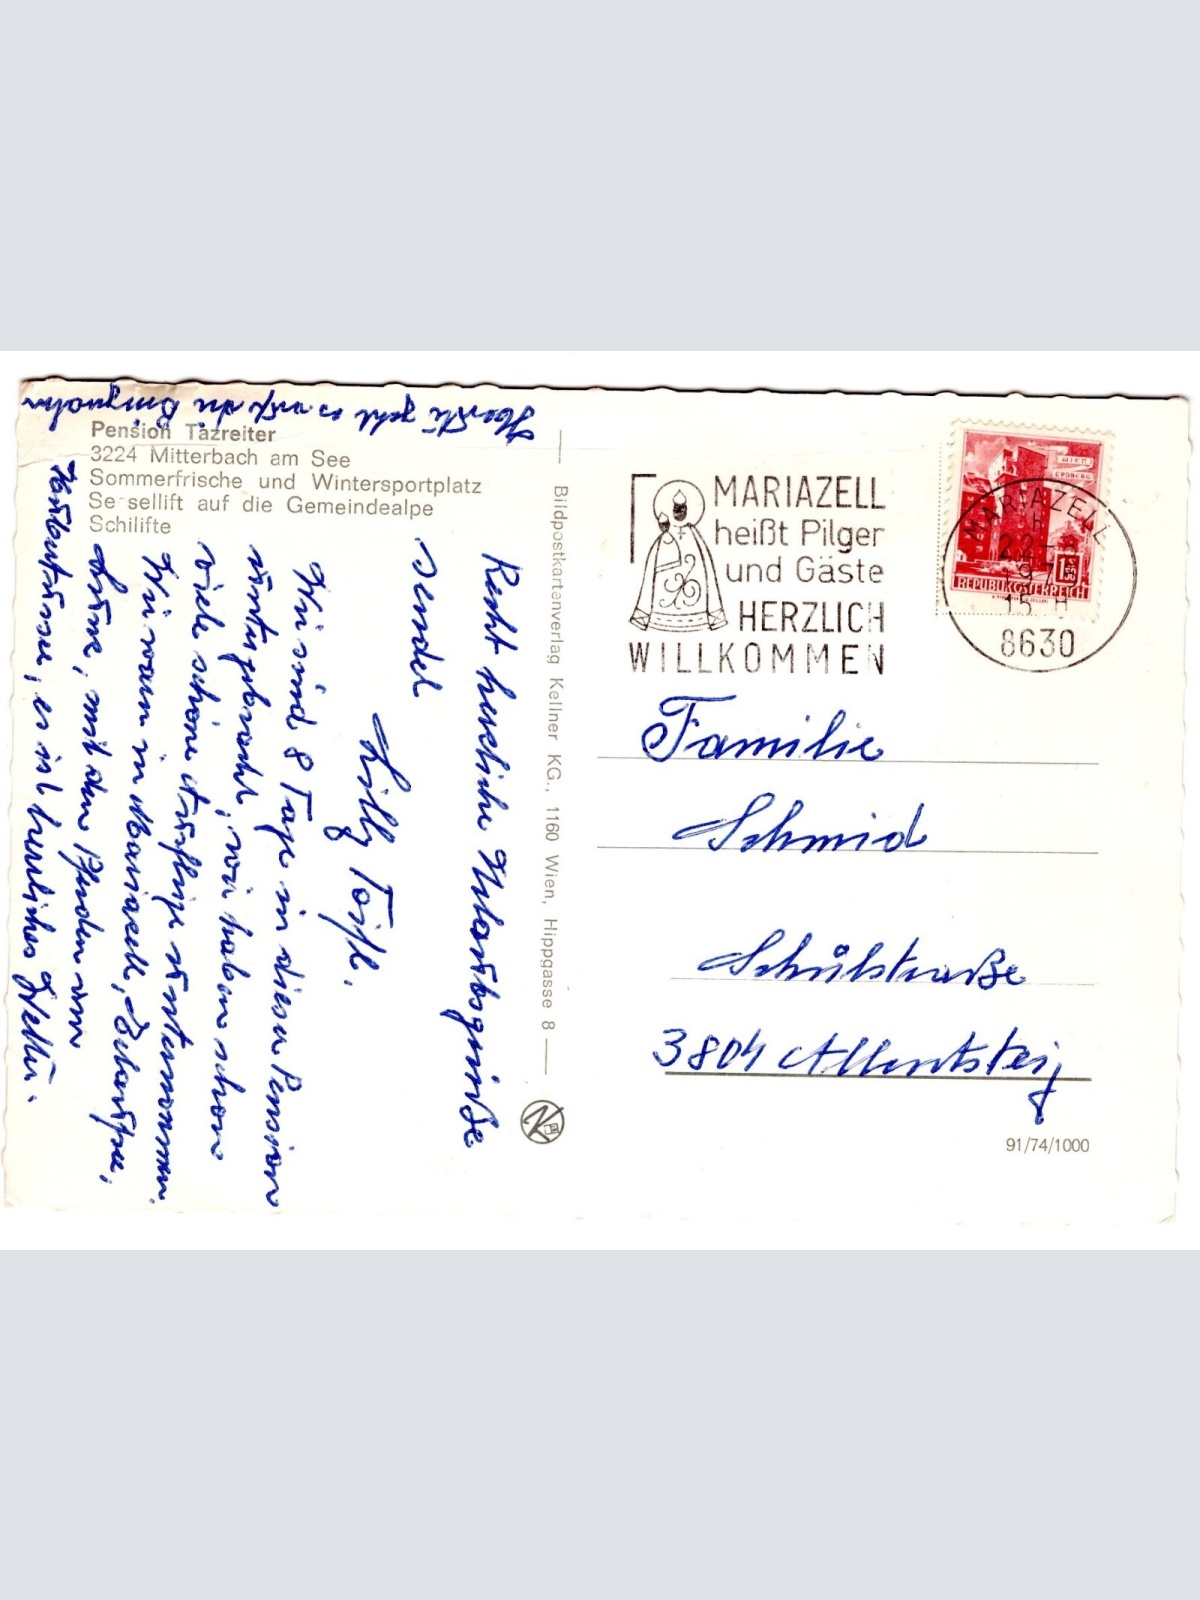 Pension Tazreiter
3224 Mitterbach am See
Sommerfrische und Wintersportplatz
Sesellift auf die Gemeindealpe
Schilifte
Recht herzliche Urlaubsgrüße
sendet
Lilly Toifl.
Wir sind 8 Tage in dieser Pension
untergebracht, wir haben schon
viele schöne Ausflüge unternommen.
Wir waren in Mariazell, Erlaufsee,
Lunz, mit den Pferden am
Hubertussee, es ist herrliches Wetter.
geht es auf die Bürgeralm
Bildpostkartenverlag Kellner KG., 1160 Wien, Hippgasse 8
MARIAZELL
heißt Pilger
und Gäste
HERZLICH
WILLKOMMEN
WIEN
ERDBERG
REPUBLIK ÖSTERREICH
MARIAZELL
22-8
15 H
8630
Familie
Schmid
Schulstraße
3804 Allentsteig
91/74/1000